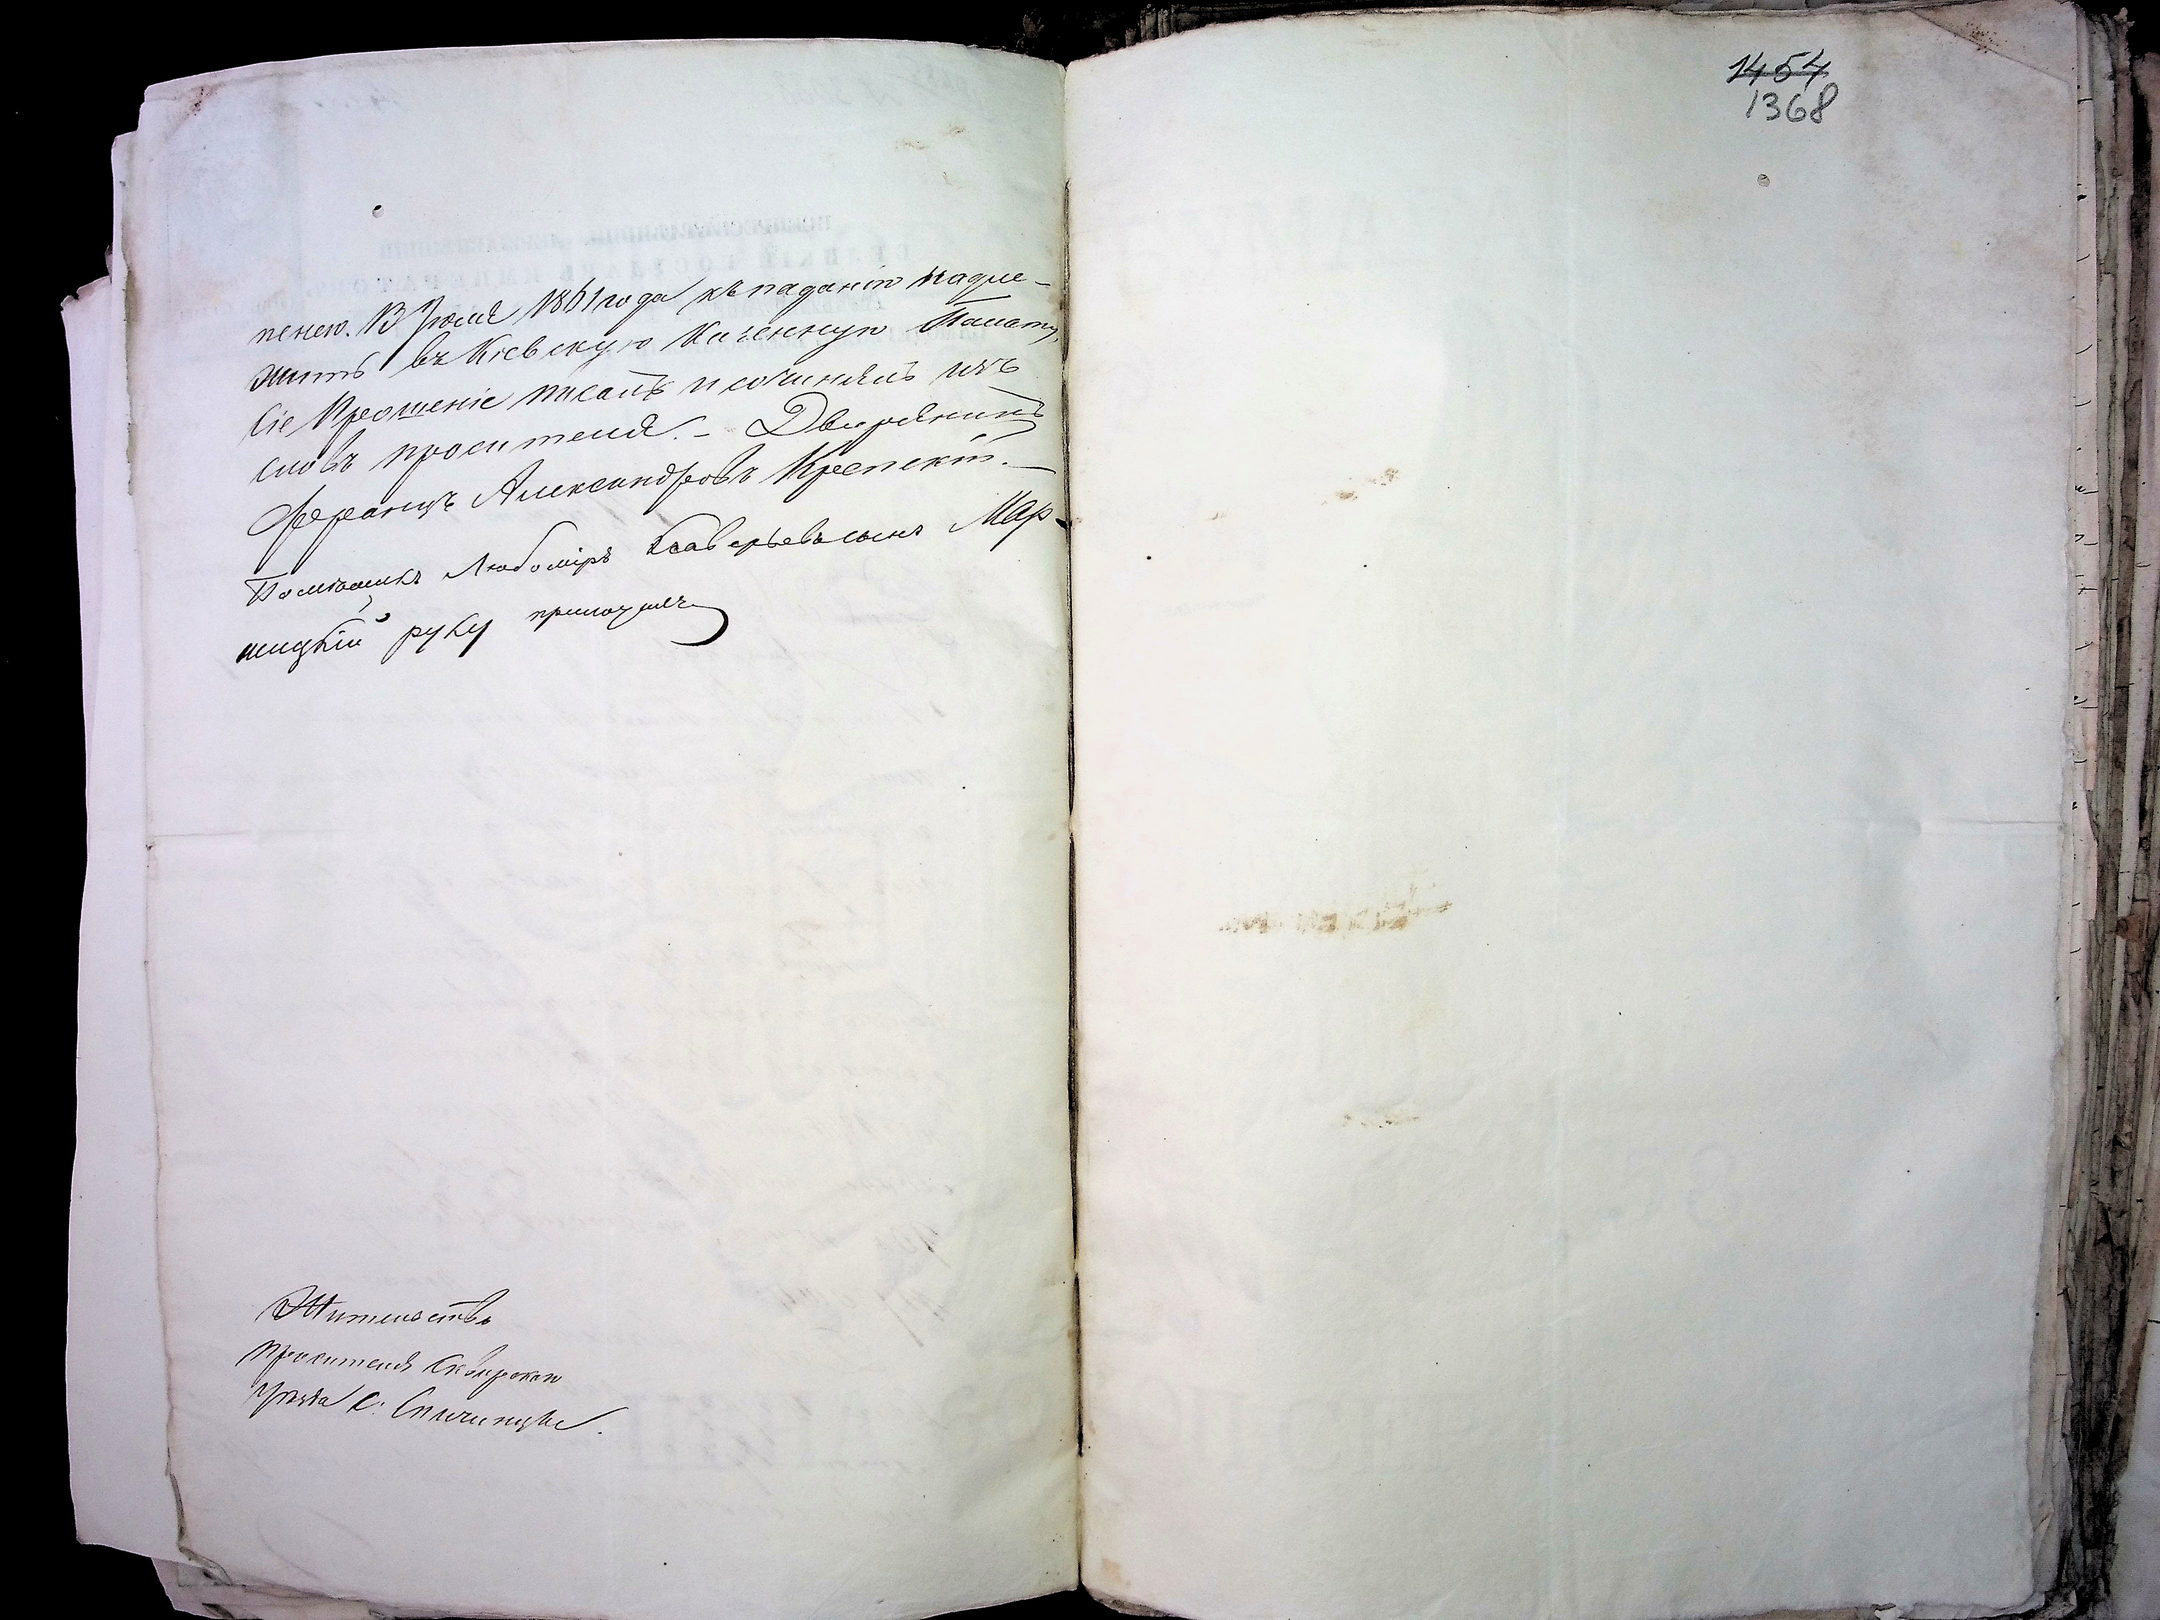 1454
1368
пенею. В Іюля 1861 года къ подачѣ надле-
житъ въ Кіевскую Казенную Палату,
сіе Прошеніе писалъ и сочинялъ изъ
словъ просителя. – Дворянинъ
Феранцъ Александровъ Крепскій. –
Помѣщикъ Любоміръ Ксаверьевъ сынъ Мар-
шицкій руку приложилъ
Жительство
просителя Сквирскаго
уѣзда с. Спичинцы.